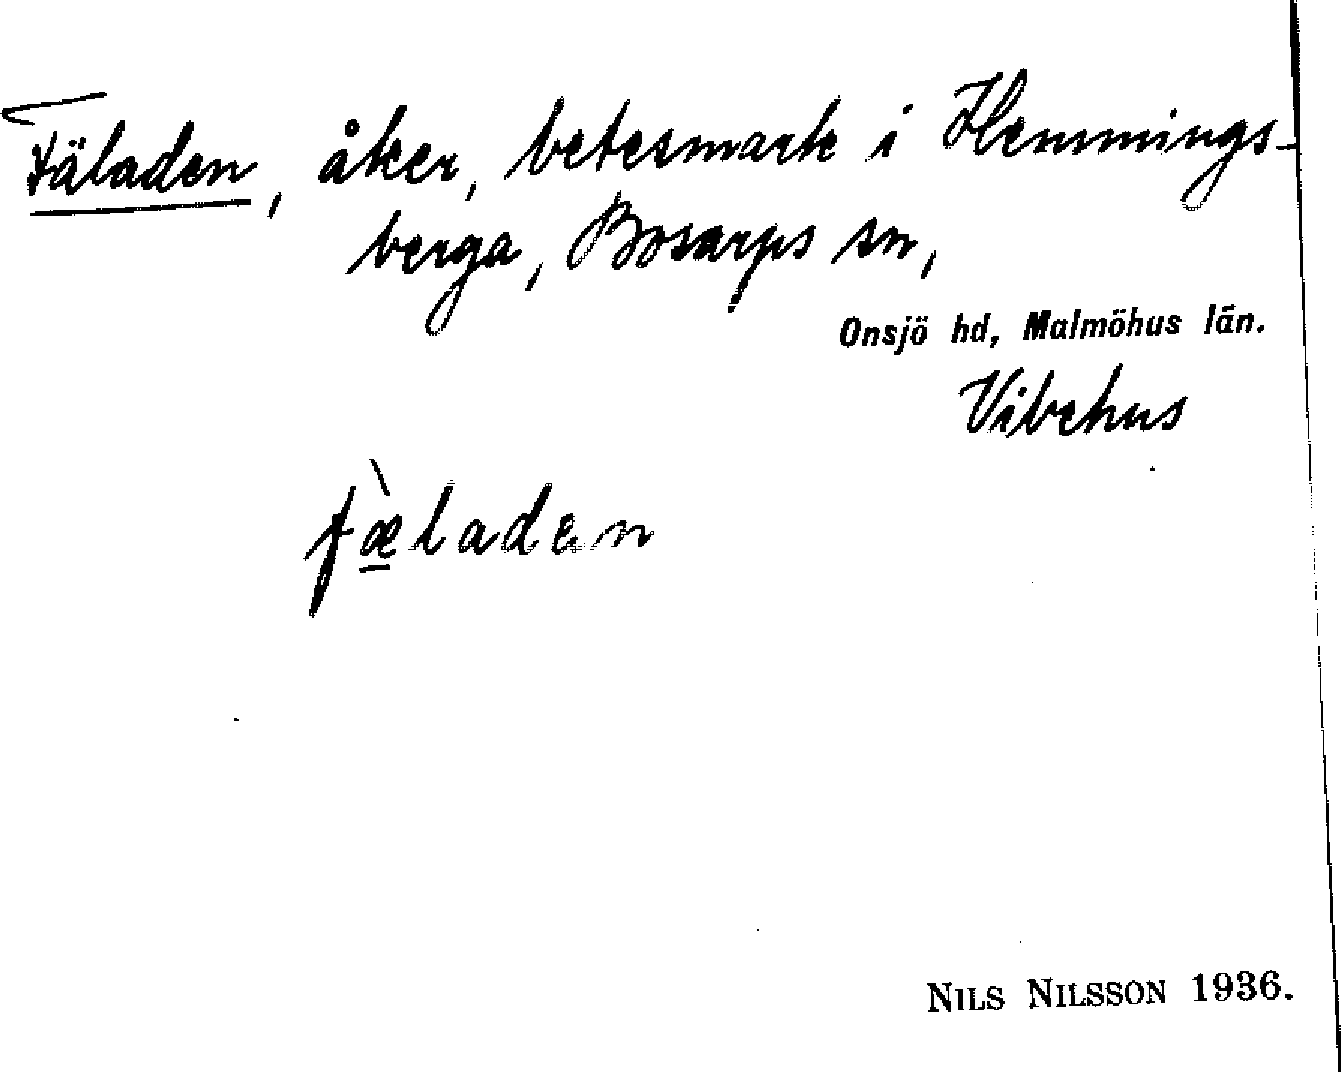 Fäladen, åker, betesmark i Hemmings-
berga, Bosarps sn,
Onsjö hd, Malmöhus län.
Vibehus
fæ̀laden
NILS NILSSON 1936.